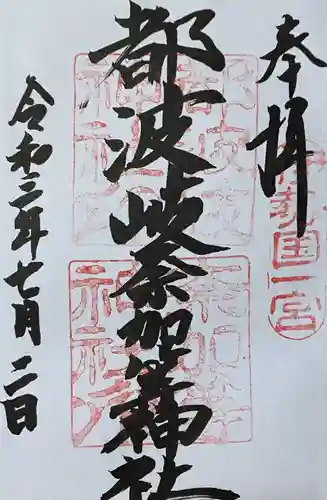 奉拝
伊勢国一宮
都波岐奈加等神社
令和三年七月二日